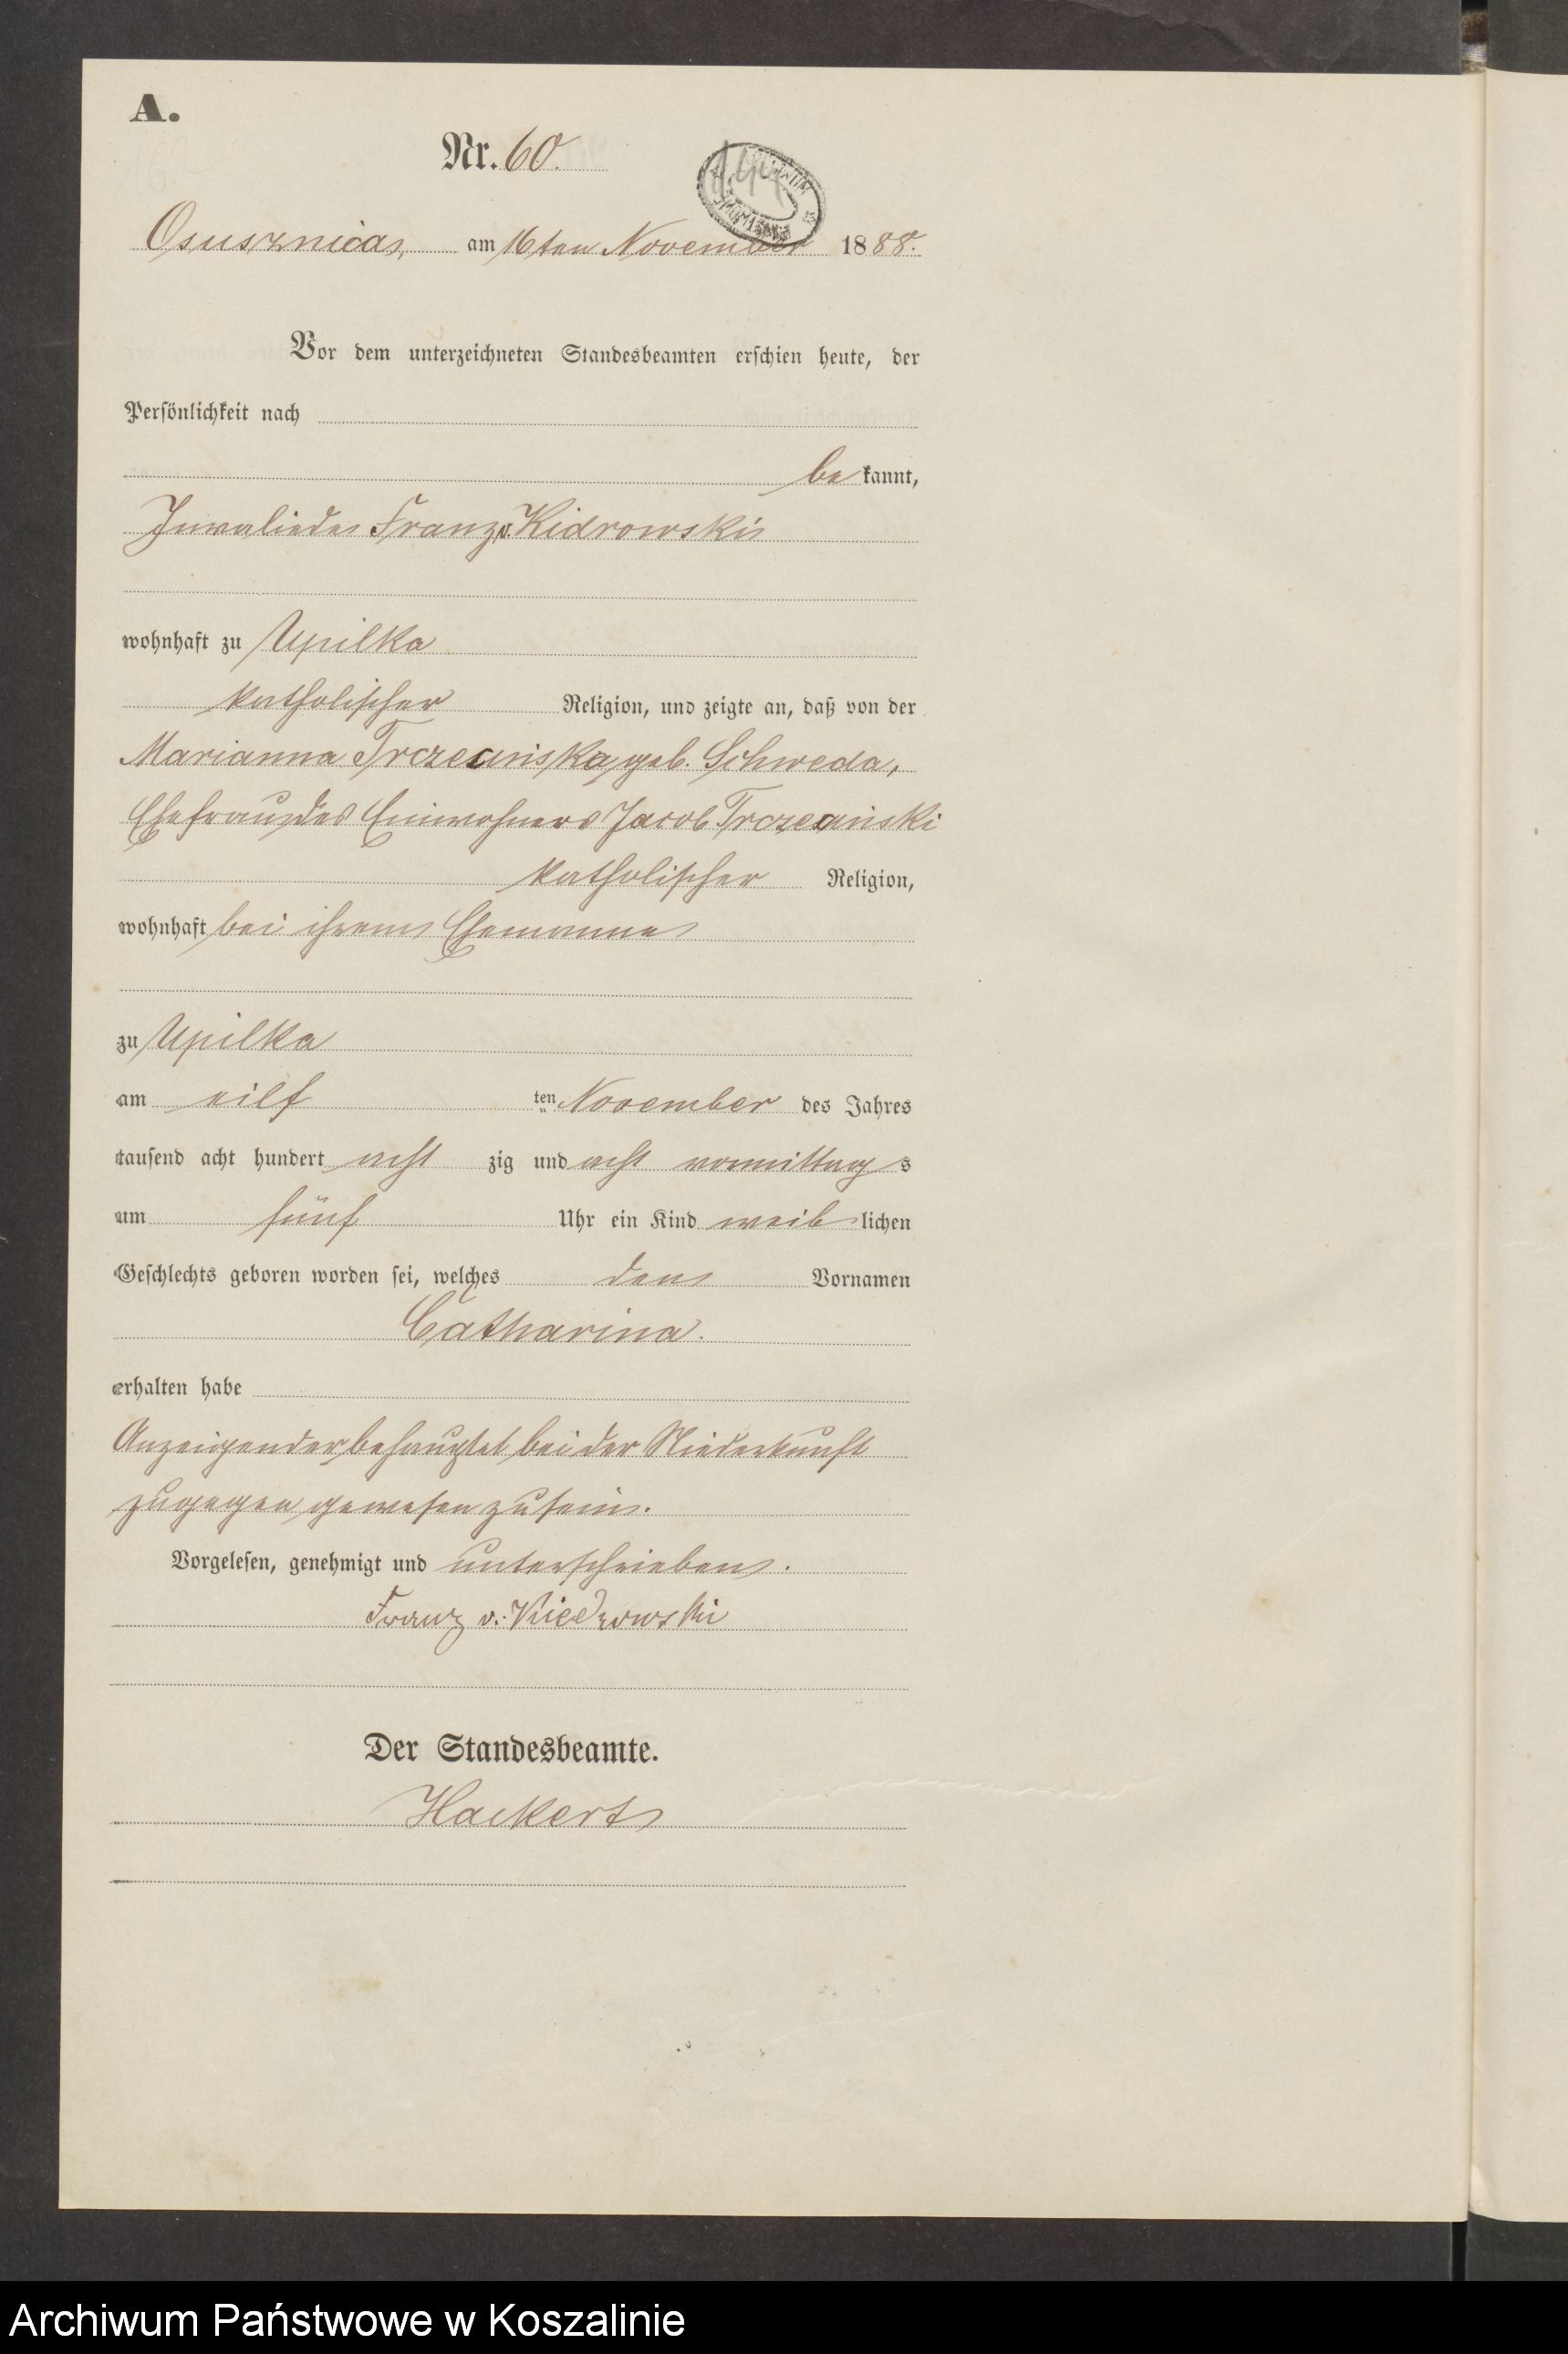 A.
Nr. 60.
Osusznica, am 16ten November 1888.
Vor dem unterzeichneten Standesbeamten erschien heute, der
Persönlichkeit nach
be kannt,
Invaliede Franz v. Kidrowski
wohnhaft zu Upilka
katholischer Religion, und zeigte an, daß von der
Marianna Trczeańska geb. Schweda,
Ehefrau des Einwohners Jacob Trczeański
katholischer Religion,
wohnhaft bei ihrem Ehemanne
zu Upilka
am eilf ten November des Jahres
tausend acht hundert acht zig und acht vormittag s
um fünf Uhr ein Kind weib lichen
Geschlechts geboren worden sei, welches den Vornamen
Catharina.
erhalten habe
Anzeigender behauptet bei der Niederkunft
zugegen gewesen zu sein.
Vorgelesen, genehmigt und unterschrieben.
Franz v. Kiedrowski
Der Standesbeamte.
Hackert
Archiwum Państwowe w Koszalinie